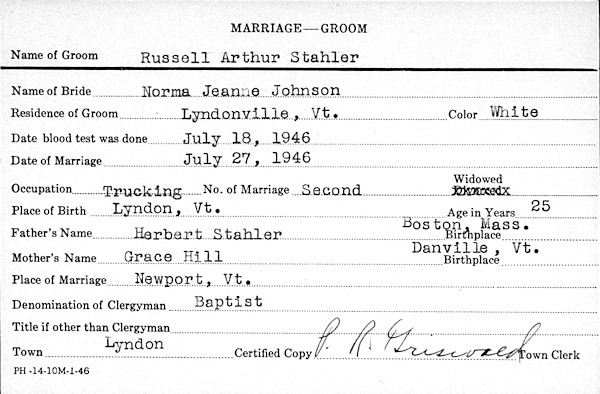 MARRIAGE—GROOM
Name of Groom Russell Arthur Stahler
Name of Bride Norma Jeanne Johnson
Residence of Groom Lyndonville, Vt. Color White
Date blood test was done July 18, 1946
Date of Marriage July 27, 1946
Occupation Trucking No. of Marriage Second Widowed
Place of Birth Lyndon, Vt. Age in Years 25
Father's Name Herbert Stahler Birthplace Boston, Mass.
Mother's Name Grace Hill Birthplace Danville, Vt.
Place of Marriage Newport, Vt.
Denomination of Clergyman Baptist
Title if other than Clergyman
Town Lyndon Certified Copy P. R. Griswold Town Clerk
PH-14-10M-1-46